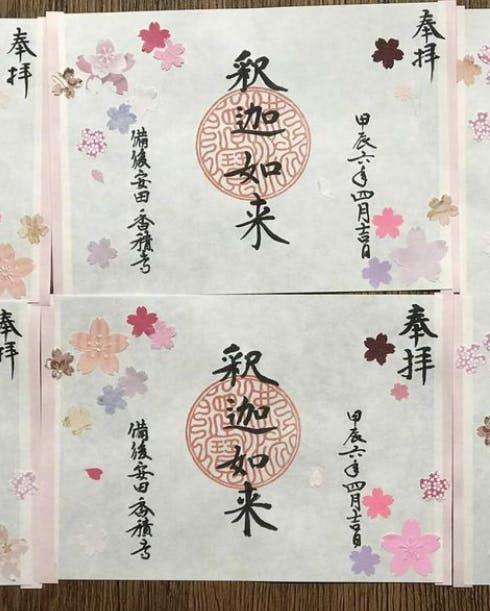 奉拝
甲辰六年四月吉日
釈迦如来
備後安田 香積寺
奉拝
奉拝
甲辰六年四月吉日
釈迦如来
備後安田 香積寺
奉拝